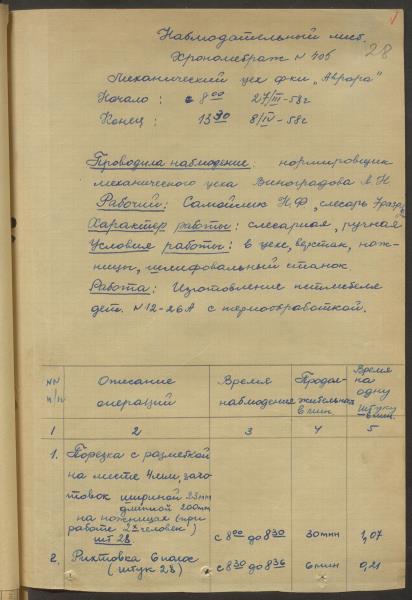 Наблюдательный лист.
28
Хронометраж № 405
Механический цех ф-ки „Аврора"
Начало: с 8⁰⁰ 27/III-58г
Конец: 13³⁰ 8/IV-58г
Проводила наблюдение: нормировщик
механического цеха Виноградова А.Н
Рабочий: Самойлик Н.Ф, слесарь 7 разр
Характер работы: слесарная, ручная
Условия работы: в цехе, верстак, нож-
ницы, шлифовальный станок.
Работа: Изготовление
дет. №12-26А с термообработкой.
NN п/п Описание операций Время наблюдение Продол-жительная в мин Время на одну штуку в мин.
1 2 3 4 5
1. Порезка с разметкой
на месте 4 мм, заго-
товок шириной 23мм
длиной 200мм
на ножницах (при
работе 2х человек)
шт 28. с 8⁰⁰ до 8³⁰ 30мин 1,07
2. Рихтовка 6 полос
(штук 28) с 8³⁰ до 8³⁶ 6мин 0,21